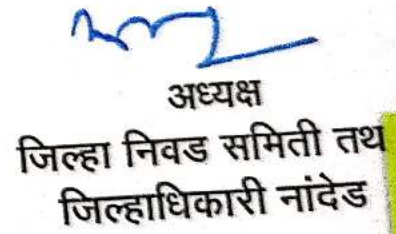 अध्यक्ष
जिल्हा निवड समिती तथ
जिल्हाधिकारी नांदेड